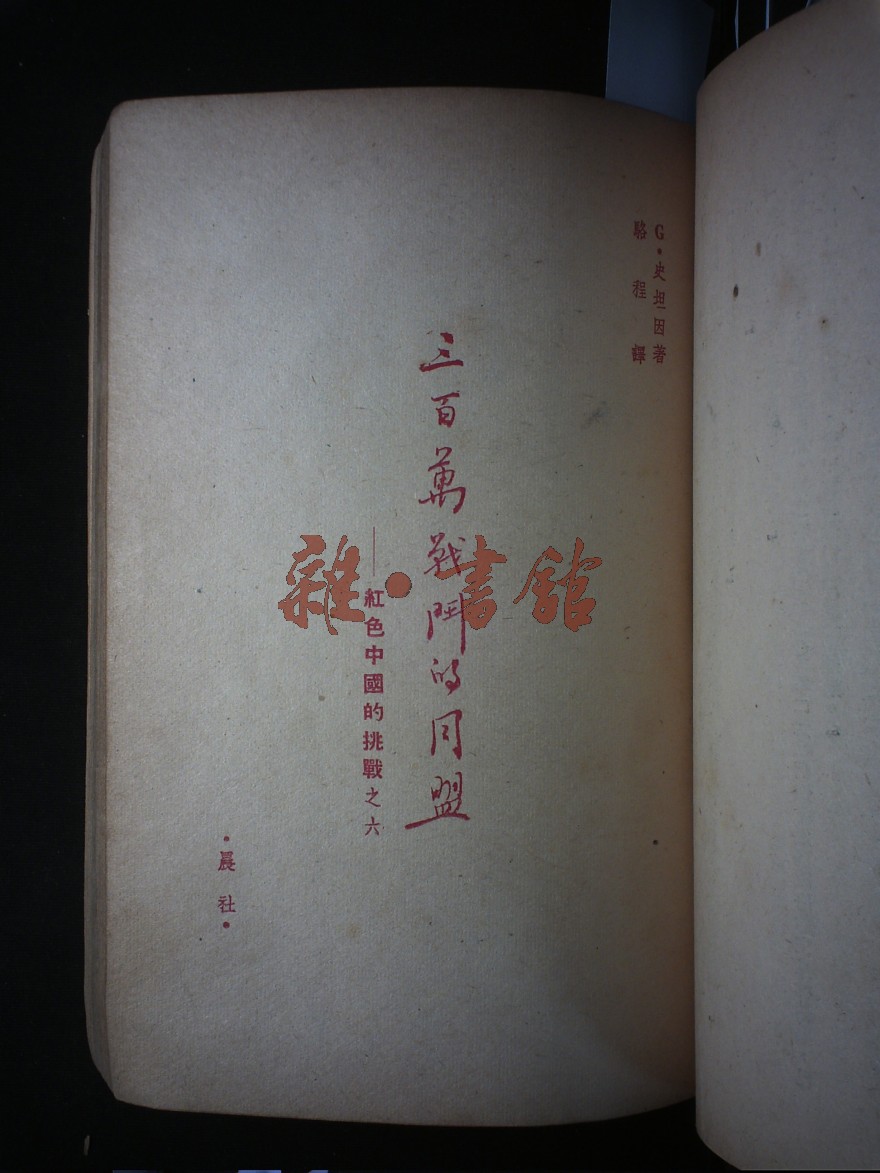 G·史坦因著
駱程譯
三百萬戰鬥的同盟
——紅色中國的挑戰之六
·晨社·
雜·書館